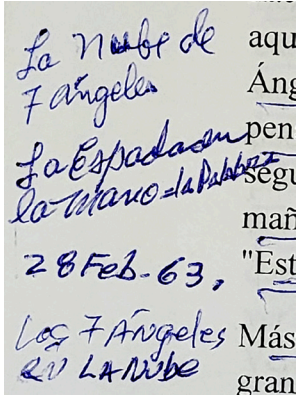 La Nube de
7 ángeles
La Espada en
la mano = la Palabra
28 Feb-63,
Los 7 Ángeles
en LA Nube
aqu
Áng
pen
segu
mañ
"Est
Más
gran